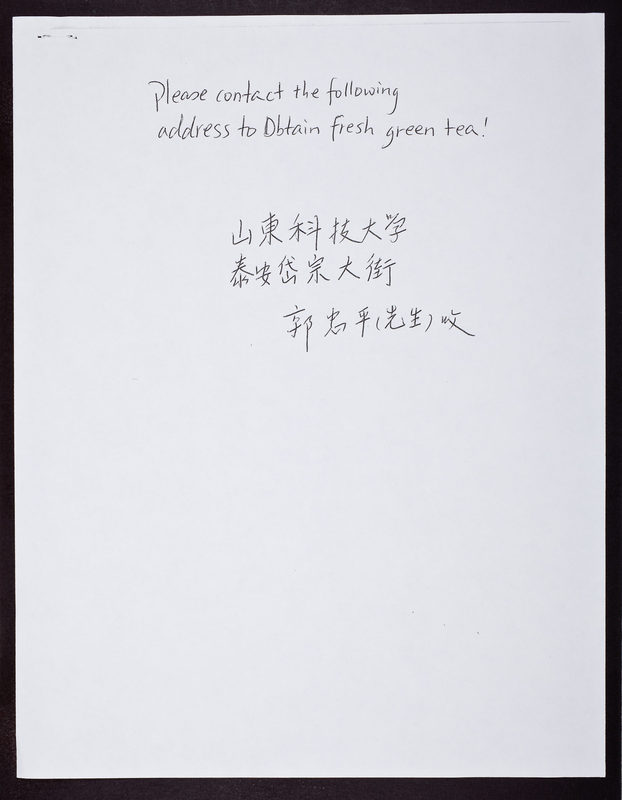 Please contact the following
address to Obtain fresh green tea!
山東科技大学
泰安岱宗大街
郭忠平(先生)收